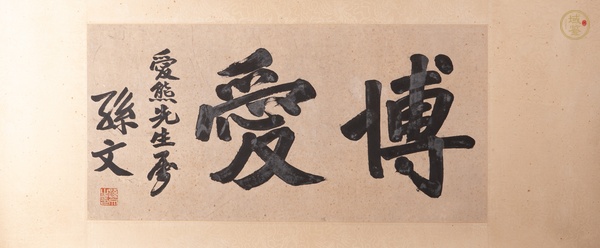 博愛
愛熊先生屬
孫文